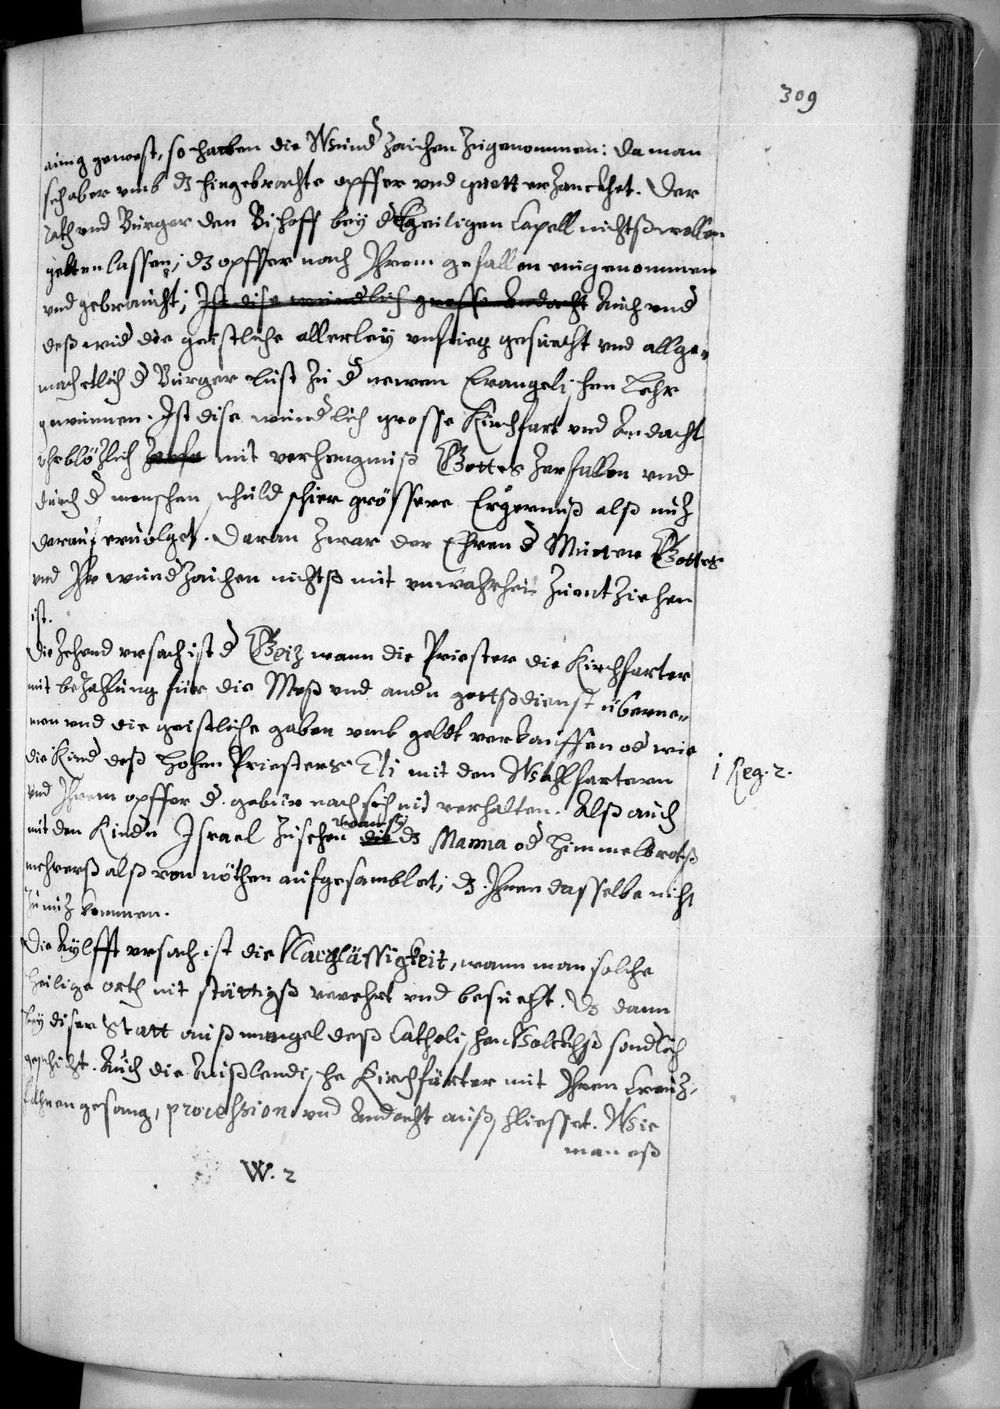 309
ainig gewest, so haben die Wund zaichen zugenommen: da man
sich aber umb dz hingebrachte opffer vnd guott erzanckhet. Der
Rath vnd Burger den Bischoff bey d heiligen Capell nichtß wellen
gelten lassen; dz opffer nach Ihrem gefallen eingenommen
vnd gebraucht; Ist dise wundlich grosse Andacht Auch vnd
deß wid die geistliche allerley vnfueg gesucht vnd allge-
mach etlich d Burger lust zu d newen Evangelischen Lehr
gewunnen. Ist dise wundlich grosse Kirchfart vnd Andacht
vhrblözlich mit verhengniß Gottes zerfallen vnd
durch d menschen schuld schier grössere Ergernuß alß nuz
darauß ervolget. Daran zwar der Ehren d Mutter Gottes
vnd Ihr wundzaichen nichtß mit vnwahrheit zuentziehen
ist.
Die Zehend vrsach ist d Geiz wann die Priester die Kirchfarter
mit bezahlung für die Meß vnd andn gottßdienst überne-
men vnd die geistliche gaben vmb geldt verkauffen od wie
die Kind deß Hohen Priesters Eli mit den Walhlfartern
1 Reg. 2.
vnd Ihrem opffer d. gebür nach sich nit verhalten. Alß auch
mit den Kindn Israel zusehen wan sy die dz Manna od Himmelbrotß
mehrerß alß von nöthen aufgesamblet; dz Ihnen dasselbe nicht
zu nuz kommen.
Die Aylfft vrsach ist die Nachlässigkeit, wann man solche
heilige orth nit stättigß verehrt vnd besucht. Dz dann
bey diser Statt auß mangel deß Catholischen Volckhß sondlich
geschicht. Auch die Außlendische Kirchfärter mit Ihren Creuz,
fahnen gesang, procession vnd Andacht außschliesset. Wie
man eß
W. 2